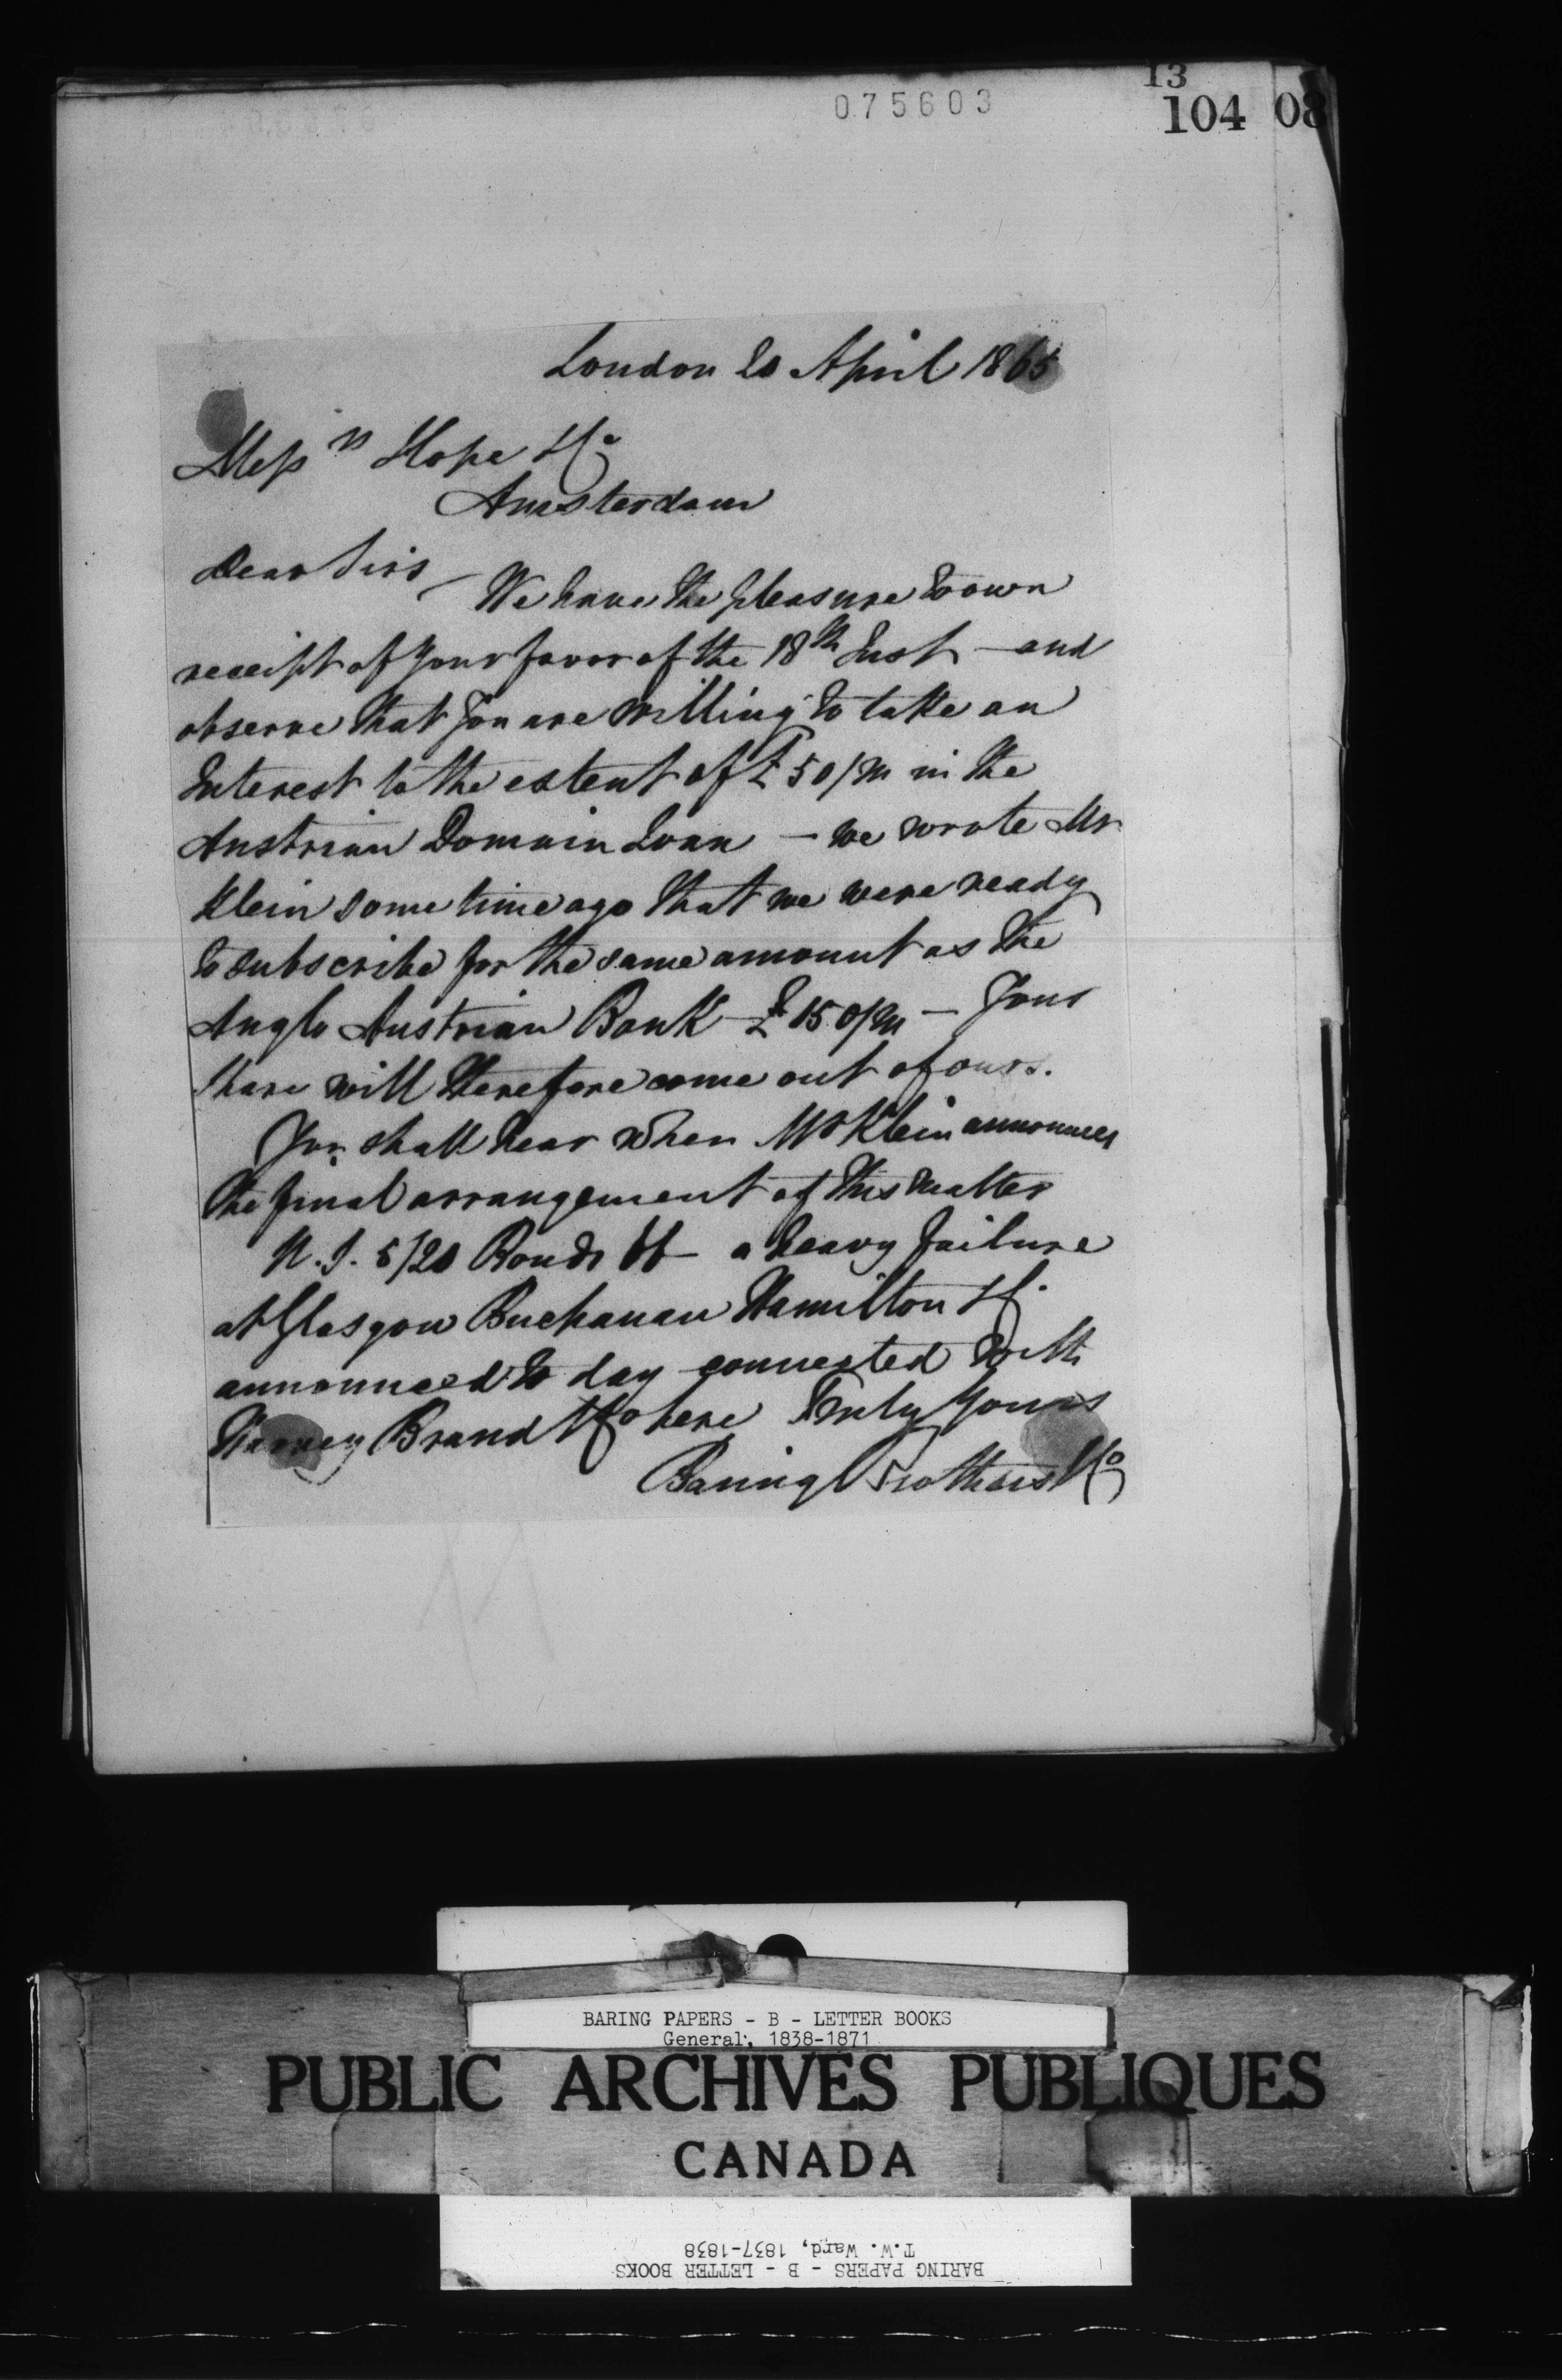 075603
13
104 08
London 20 April 1865
Mess rs Hope & Co
Amsterdam
Dear Sirs
We have the pleasure to own
receipt of your favor of the 18th Inst - and
observe that you are willing to take an
Interest to the extent of £50/m in the
Austrian Domain Loan - we wrote Mr
Klein some time ago that we were ready
to subscribe for the same amount as the
Anglo Austrian Bank £150/m - Your
share will therefore come out of ours.
You shall hear when Mr Klein announces
the final arrangement of this matter
5/20 Bonds a heavy failure
at Glasgow Buchanan Hamilton & Co
announced to day connected with
Brand & Co here Truly Yours
Baring Brothers & Co
BARING PAPERS - B - LETTER BOOKS
General, 1838-1871
PUBLIC ARCHIVES PUBLIQUES
CANADA
BARING PAPERS - B - LETTER BOOKS
T.W. Ward, 1837-1838